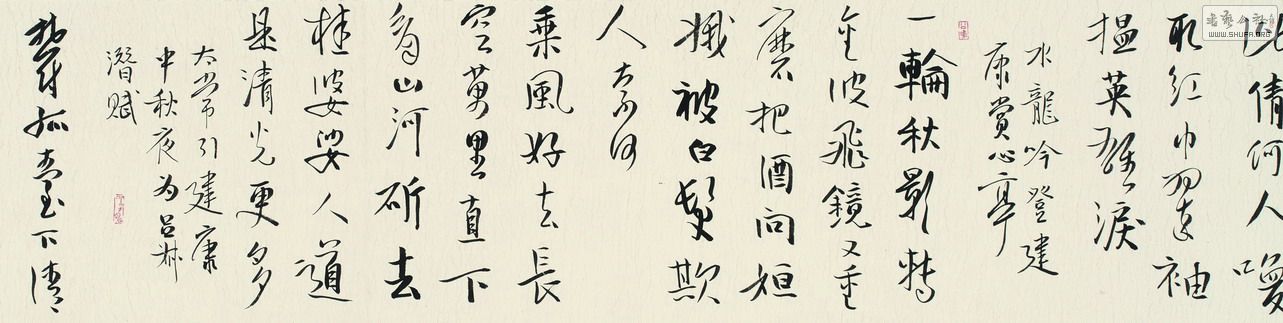 書藝公社
WWW.SHUFA.ORG
此倩何人喚
取红巾翠袖
揾英雄淚
水龍吟登建
康賞心亭
一輪秋影轉
金波飛鏡又重
磨把酒问姮
娥被白髮欺
人奈何
乘風好去長
空萬里直下
看山河斫去
桂婆娑人道
是清光更多
太常引建康
中秋夜为吕叔
潛賦
鬱孤臺下清〻